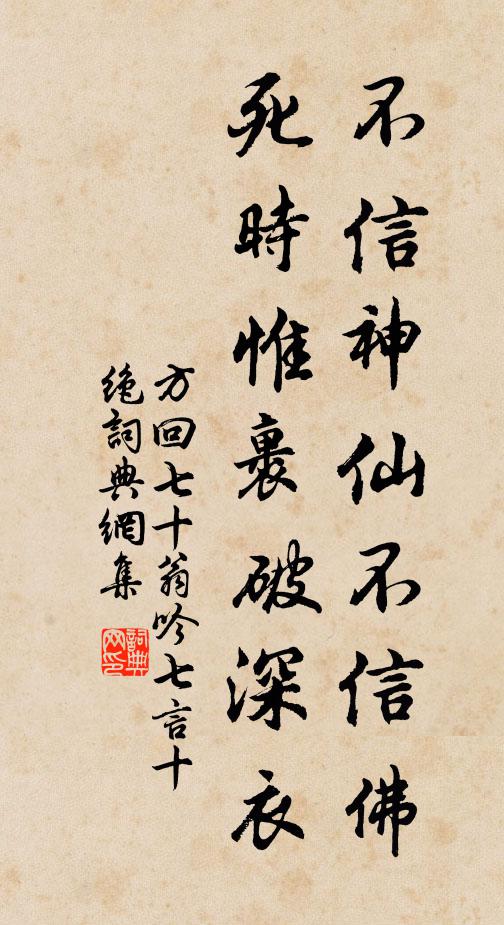 不信神仙不信佛
死時惟裹破深衣
方回七十翁吟七言十
絶詞典網集
詞典
网印